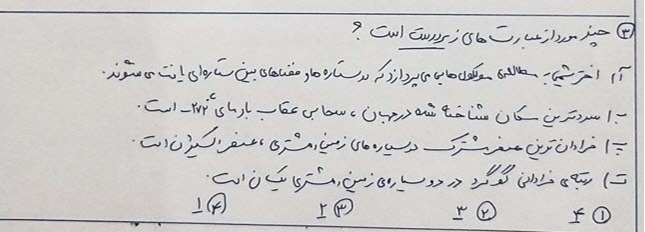 ۳) چند مورد از عبارت های زیر درست است ؟
آ) اخترشیمی به مطالعه‌ی مولکول هایی می پردازد که در ستاره ها و فضاهای بین ستاره ای یافت می شوند.
ب) سردترین مکان شناخته شده در جهان ، سحابی عقاب با دمای ‎-۲۷۲° است.
پ) فراوان ترین عنصر مشترک در سیاره های زمین و مشتری ، عنصر اکسیژن است.
ت) رتبه ی فراوانی گوگرد در دو سیاره ی زمین و مشتری یکسان است.
۱) ۴ ۲) ۳ ۳) ۲ ۴) ۱